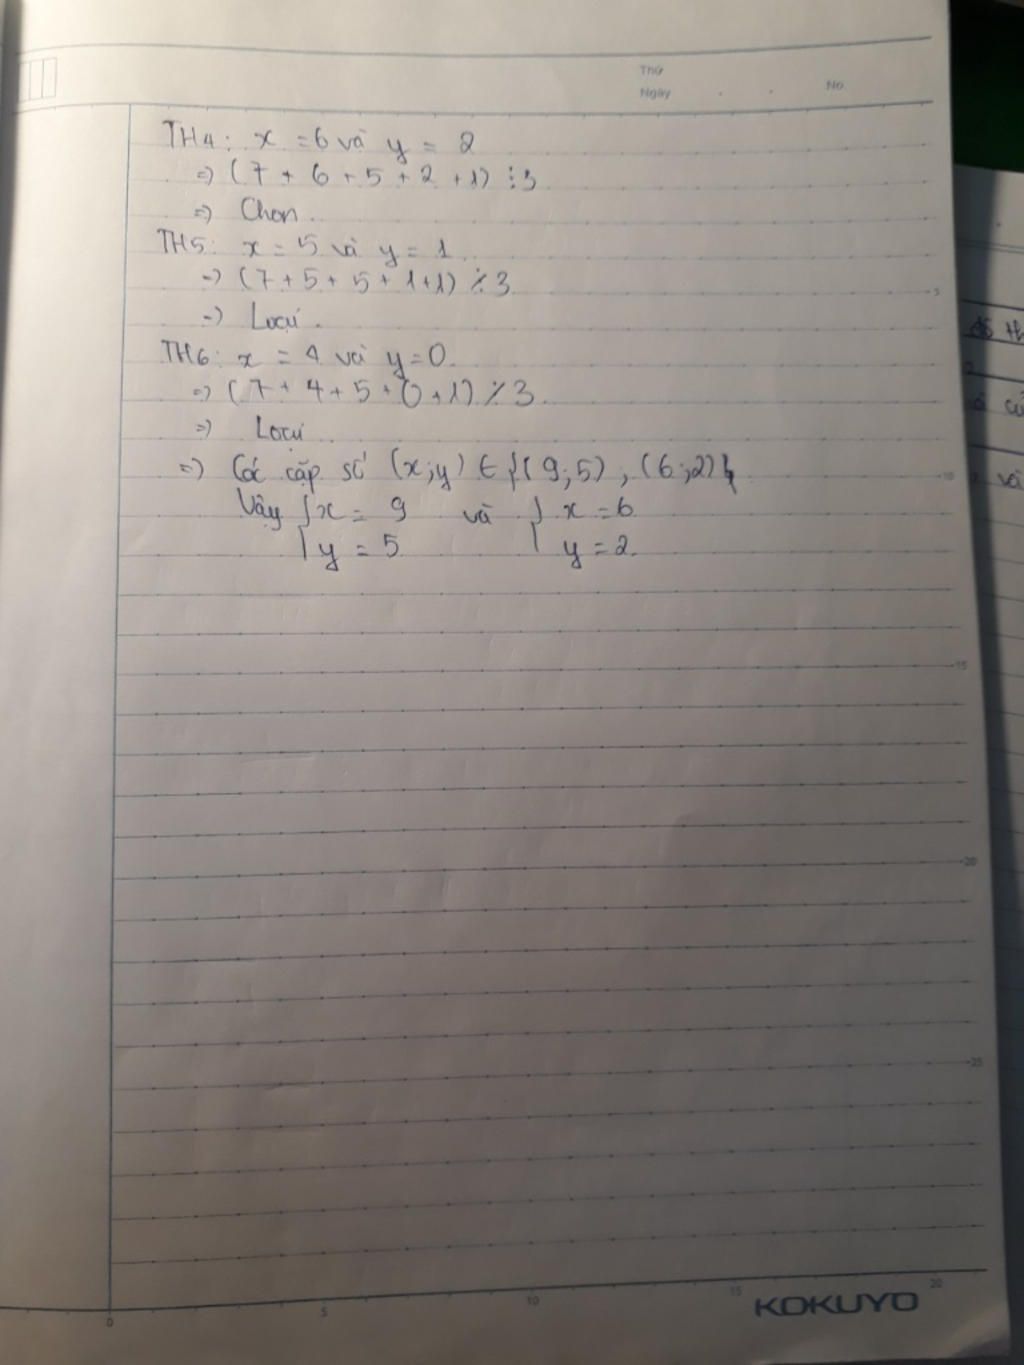 Thứ
Ngày . . No.
TH4: x = 6 và y = 2
=> (7 + 6 + 5 + 2 + 1) ⋮ 3
=> Chọn.
TH5: x = 5 và y = 1
=> (7 + 5 + 5 + 1 + 1) ⋮̸ 3
=> Loại.
TH6: x = 4 và y = 0.
=> (7 + 4 + 5 + 0 + 1) ⋮̸ 3.
=> Loại.
=> Các cặp số (x;y) ∈ {(9;5), (6;2)}
Vậy { x = 9 và { x = 6
{ y = 5 { y = 2.
đề th
số củ
và
5
10
15
20
25
0 5 10 15 20
KOKUYO